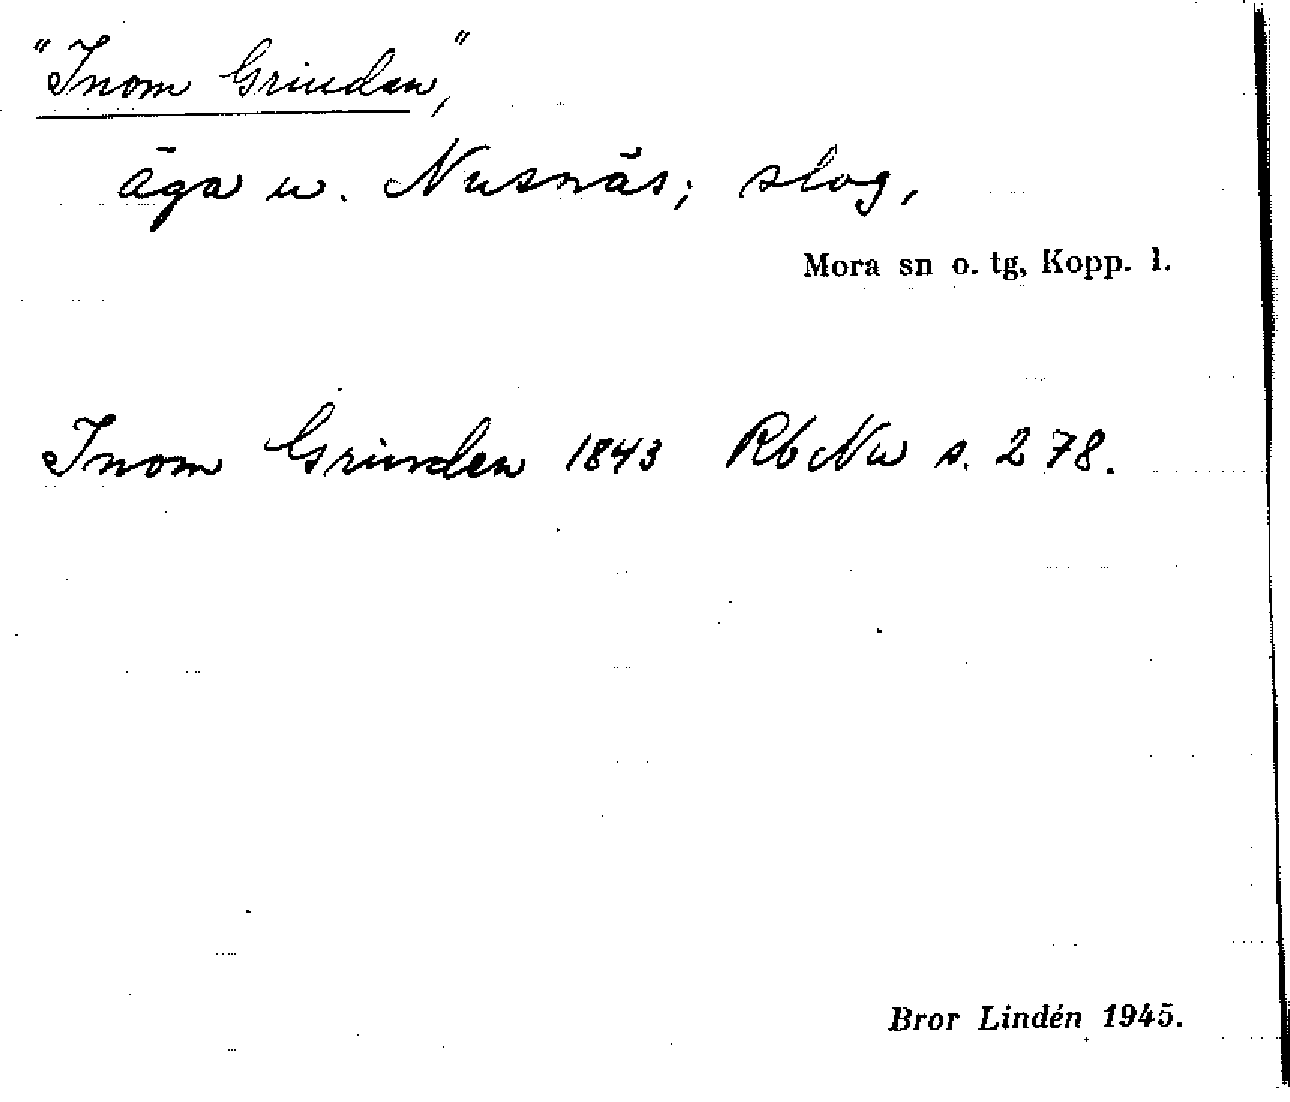 "Inom Grinden",
äga u. Nusnäs; slog,
Mora sn o. tg, Kopp. l.
Inom Grinden 1843 Rb Nu s. 278.
Bror Lindén 1945.